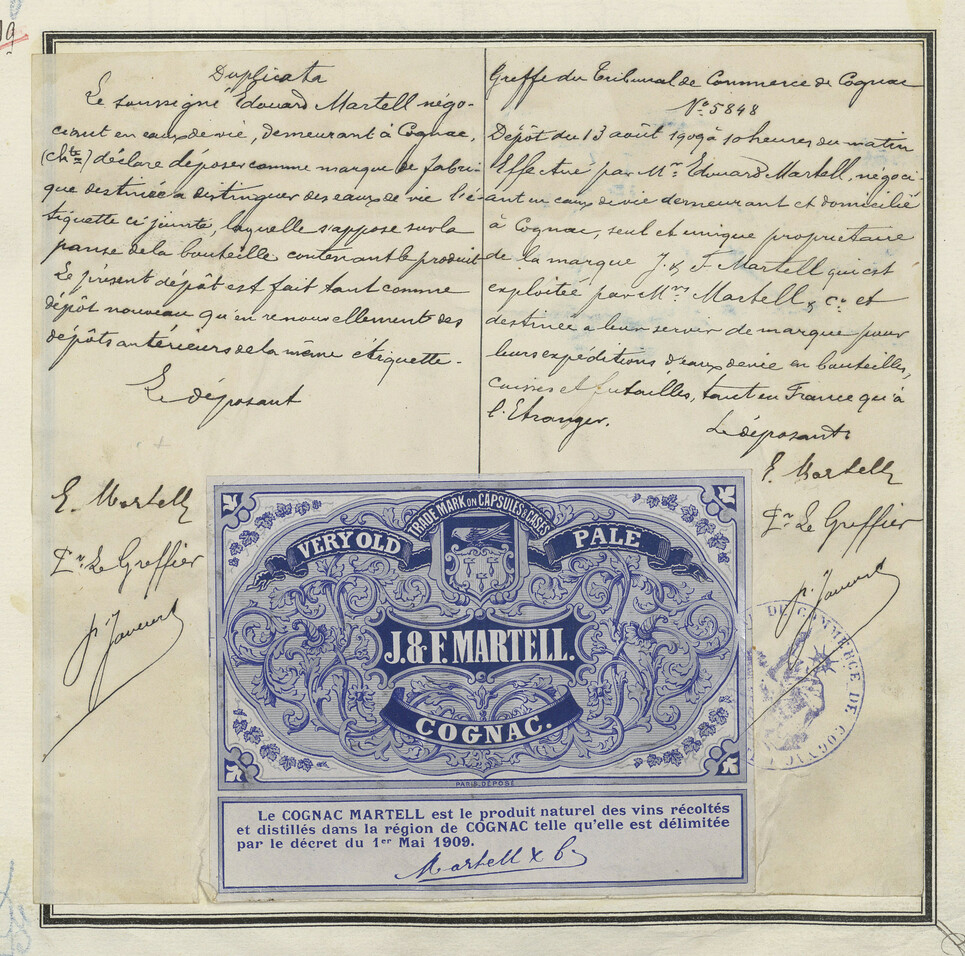 19
Duplicata
Le soussigné Edouard Martell négo-
ciant en eaux de vie, demeurant à Cognac,
(Chte) déclare déposer comme marque de fabri-
que destinée a distinguer des eaux de vie l'é-
tiquette ci jointe, laquelle s'appose sur la
panse de la bouteille contenant le produit
Le présent dépôt est fait tant comme
dépôt nouveau qu'en renouvellement des
dépôts antérieurs de la même étiquette.
Le déposant
E. Martell
Pr Le Greffier
Greffe du Tribunal de Commerce de Cognac
No 5848
Dépôt du 13 août 1909 à 10 heures du matin
Effectué par Mr Edouard Martell, négoci-
ant en eaux de vie demeurant et domicilié
à Cognac, seul et unique propriétaire
de la marque J. & F. Martell qui est
exploitée par Mrs Martell & Co et
destinée a leur servir de marque pour
leurs expéditions d'eaux de vie en bouteilles,
caisses et futailles, tant en France qu'à
l'Etranger.
Le déposant
E. Martell
Pr Le Greffier
TRADE MARK ON CAPSULES & CASES
VERY OLD PALE
J. & F. MARTELL.
COGNAC.
PARIS, DÉPOSÉ
Le COGNAC MARTELL est le produit naturel des vins récoltés
et distillés dans la région de COGNAC telle qu'elle est délimitée
par le décret du 1er Mai 1909.
Martell & Co
DE COMMERCE DE COGNAC